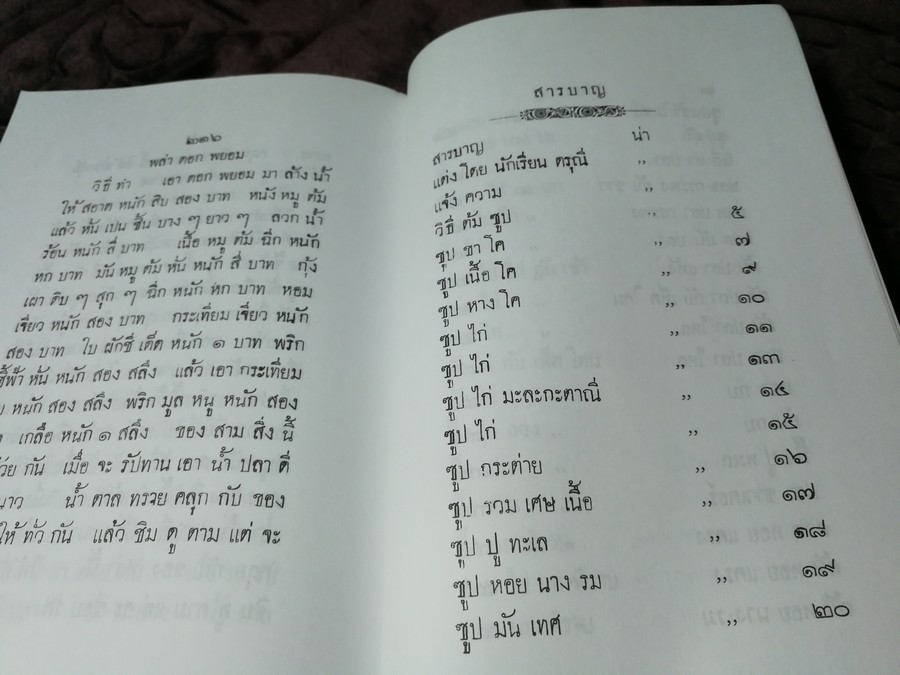 ๒๑๖
พล่า ดอก พยอม
วิธี ทำ เอา ดอก พยอม มา ล้าง น้ำ
ให้ สอาด หนัก สิบ สอง บาท หนัง หมู ต้ม
แล้ว หั่น เปน ชิ้น บาง ๆ ยาว ๆ ลวก น้ำ
ร้อน หนัก สี่ บาท เนื้อ หมู ต้ม ฉีก หนัก
หก บาท มัน หมู ต้ม หั่น หนัก สี่ บาท กุ้ง
เผา ดิบ ๆ สุก ๆ ฉีก หนัก หก บาท หอม
เจียว หนัก สอง บาท กระเทียม เจียว หนัก
สอง บาท ใบ ผักชี เด็ด หนัก ๑ บาท พริก
ชี้ฟ้า หั่น หนัก สอง สลึง แล้ว เอา กระเทียม
หนัก สอง สลึง พริก มูล หนู หนัก สอง
เกลือ หนัก ๑ สลึง ของ สาม สิ่ง นี้
กัน เมื่อ จะ รัปทาน เอา น้ำ ปลา ดี
น้ำ ตาล ทราย คลุก กับ ของ
ให้ ทั่ว กัน แล้ว ชิม ดู ตาม แต่ จะ
สารบาญ
สารบาญ น่า
แต่ง โดย นักเรียน ดรุณี ,,
แจ้ง ความ ,,
วิธี ต้ม ซูป ,, ๕
ซุป ขา โค ,, ๗
ซูป เนื้อ โค ,, ๙
ซูป หาง โค ,, ๑๐
ซูป ไก่ ,, ๑๑
ซูป ไก่ ,, ๑๓
ซูป ไก่ มะละกะตาณี ,, ๑๔
ซูป ไก่ ,, ๑๕
ซูป กระต่าย ,, ๑๖
ซูป รวม เศษ เนื้อ ,, ๑๗
ซูป ปู ทะเล ,, ๑๘
ซูป หอย นาง รม ,, ๑๙
ซูป มัน เทศ ,, ๒๐